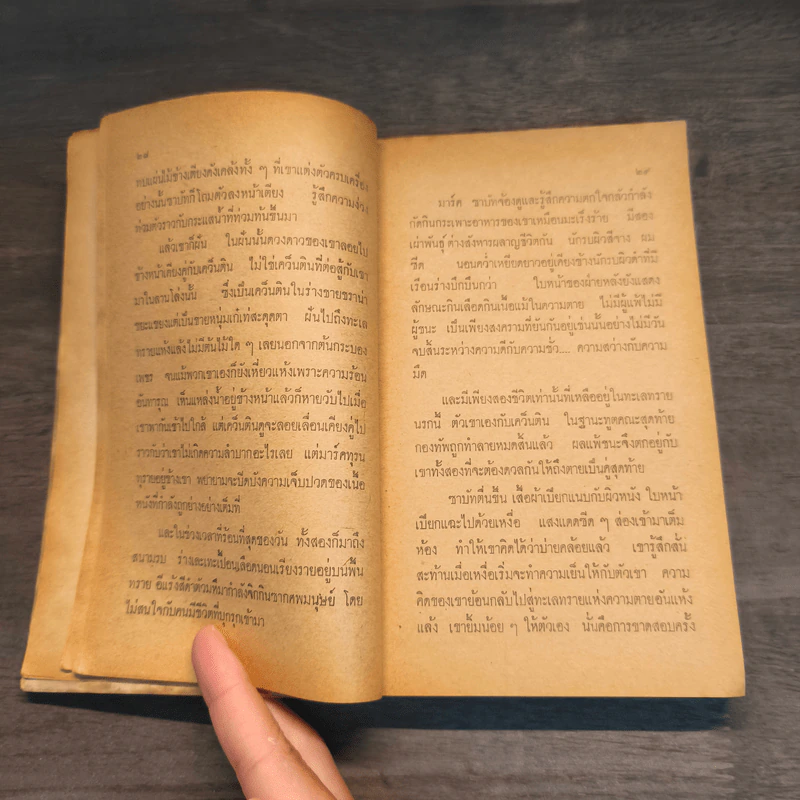 ๒๘
ทบแผ่นไม้ข้างเตียงดังเคล้งทั้ง ๆ ที่เขาแต่งตัวครบเครื่อง
อย่างนั้นซาบัทก็โถมตัวลงหน้าเตียง รู้สึกความง่วง
ท่วมตัวราวกับกระแสน้ำที่ท่วมทันขึ้นมา
แล้วเขาก็ฝัน ในฝันนั้นดวงดาวของเขาลอยไป
ข้างหน้าเตียงคู่กับเคว็นติน ไม่ใช่เคว็นตินที่ต่อสู้กับเขา
มาในลานโล่งนั้น ซึ่งเป็นเคว็นตินในร่างชายชราน่า
ขยะแขยงแต่เป็นชายหนุ่มเก้เท่สะดุดตา ฝันไปถึงทะเล
ทรายแห้งแล้งไม่มีต้นไม้ใด ๆ เลยนอกจากต้นกระบอง
เพชร จนแม้พวกเขาเองก็ยังเหี่ยวแห้งเพราะความร้อน
อันทารุณ เห็นแหล่งน้ำอยู่ข้างหน้าแล้วก็หายวับไปเมื่อ
เขาพากันเข้าไปใกล้ แต่เคว็นตินดูจะลอยเลื่อนเคียงคู่ไป
ราวกับว่าเขาไม่เกิดความลำบากอะไรเลย แต่มาร์คทุรน
ทุรายอยู่ข้างเขา พยายามจะปิดบังความเจ็บปวดของเนื้อ
หนังที่กำลังถูกย่างอย่างเต็มที่
และในช่วงเวลาที่ร้อนที่สุดของวัน ทั้งสองก็มาถึง
สนามรบ ร่างเละเทะเปื้อนเลือดนอนเรียงรายอยู่บนพื้น
ทราย อีแร้งสีดำตัวมหึมากำลังจิกกินซากศพมนุษย์ โดย
ไม่สนใจกับคนมีชีวิตที่บุกรุกเข้ามา
๒๙
มาร์ค ซาบัทจ้องดูและรู้สึกความตกใจกลัวกำลัง
กัดกินกระเพาะอาหารของเขาเหมือนมะเร็งร้าย มีสอง
เผ่าพันธุ์ต่างสังหารผลาญชีวิตกัน นักรบผิวสีจาง ผม
ซีด นอนคว่ำเหยียดยาวอยู่เคียงข้างนักรบผิวดำที่มี
เรือนร่างบึกบึนกว่า ใบหน้าของฝ่ายหลังยังแสดง
ลักษณะกินเลือดกินเนื้อแม้ในความตาย ไม่มีผู้แพ้ไม่มี
ผู้ชนะ เป็นเพียงสงครามที่ยันกันอยู่เช่นนั้นอย่างไม่มีวัน
จบสิ้นระหว่างความดีกับความชั่ว.... ความสว่างกับความ
มืด
และมีเพียงสองชีวิตเท่านั้นที่เหลืออยู่ในทะเลทราย
นรกนี้ ตัวเขาเองกับเคว็นติน ในฐานะทูตคณะสุดท้าย
กองทัพถูกทำลายหมดสิ้นแล้ว ผลแพ้ชนะจึงตกอยู่กับ
เขาทั้งสองที่จะต้องดวลกันให้ถึงตายเป็นคู่สุดท้าย
ซาบัทตื่นขึ้น เสื้อผ้าเปียกแนบกับผิวหนัง ใบหน้า
เปียกแฉะไปด้วยเหงื่อ แสงแดดซีด ๆ ส่องเข้ามาเต็ม
ห้อง ทำให้เขาคิดได้ว่าบ่ายคล้อยแล้ว เขารู้สึกสั่น
สะท้านเมื่อเหงื่อเริ่มจะทำความเย็นให้กับตัวเขา ความ
คิดของเขาย้อนกลับไปสู่ทะเลทรายแห่งความตายอันแห้ง
แล้ง เขายิ้มน้อย ๆ ให้ตัวเอง นั่นคือการขาดสอบครั้ง